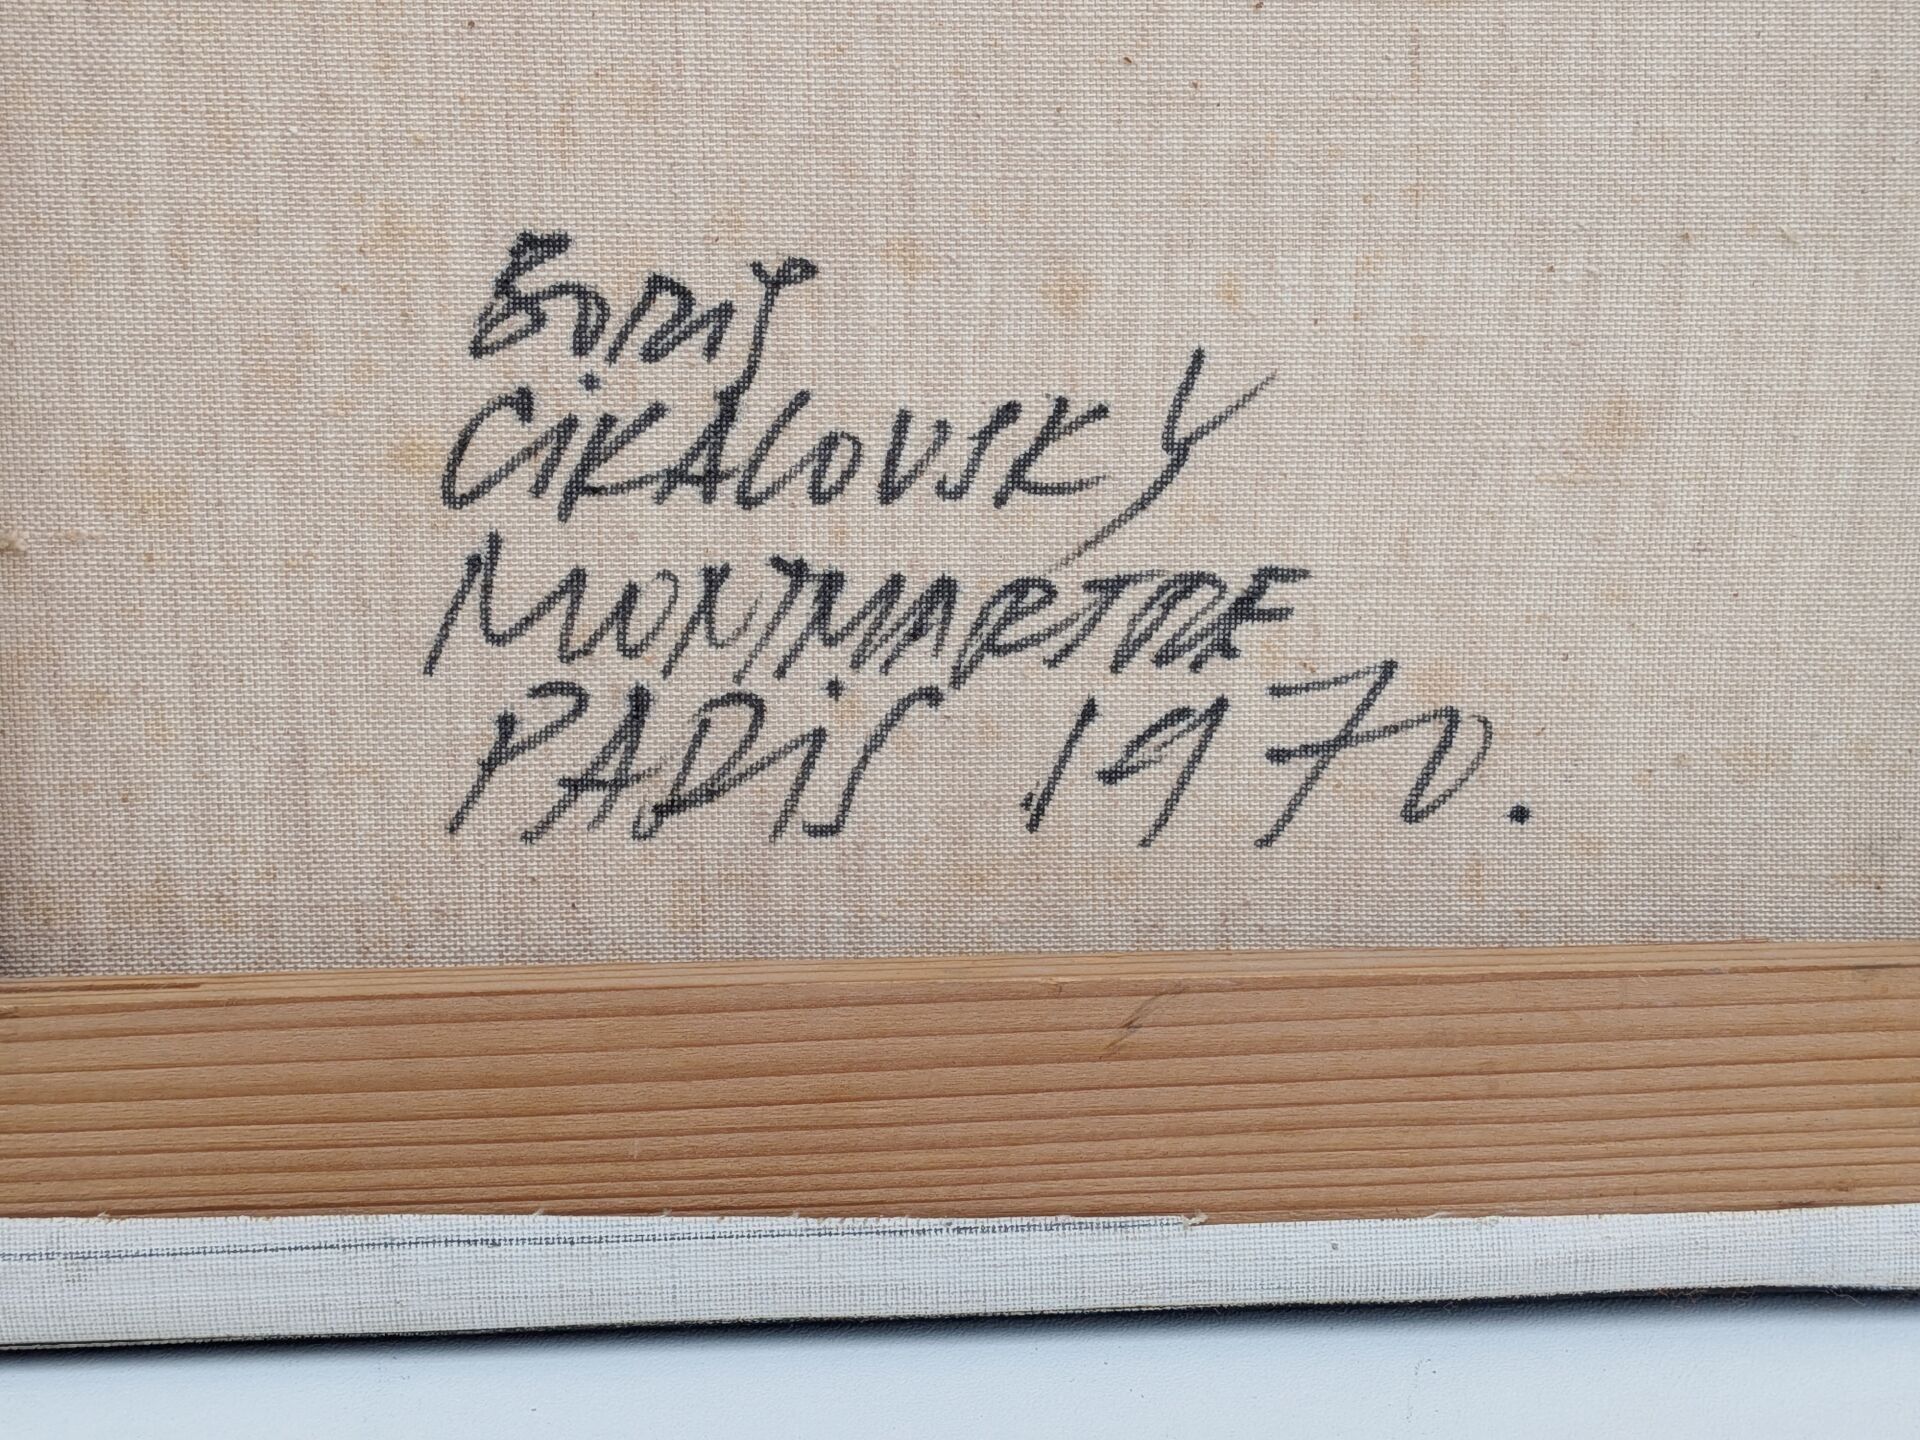 Boris
CiKALOVSKY
MONTMARTRE
PARiS 1970.